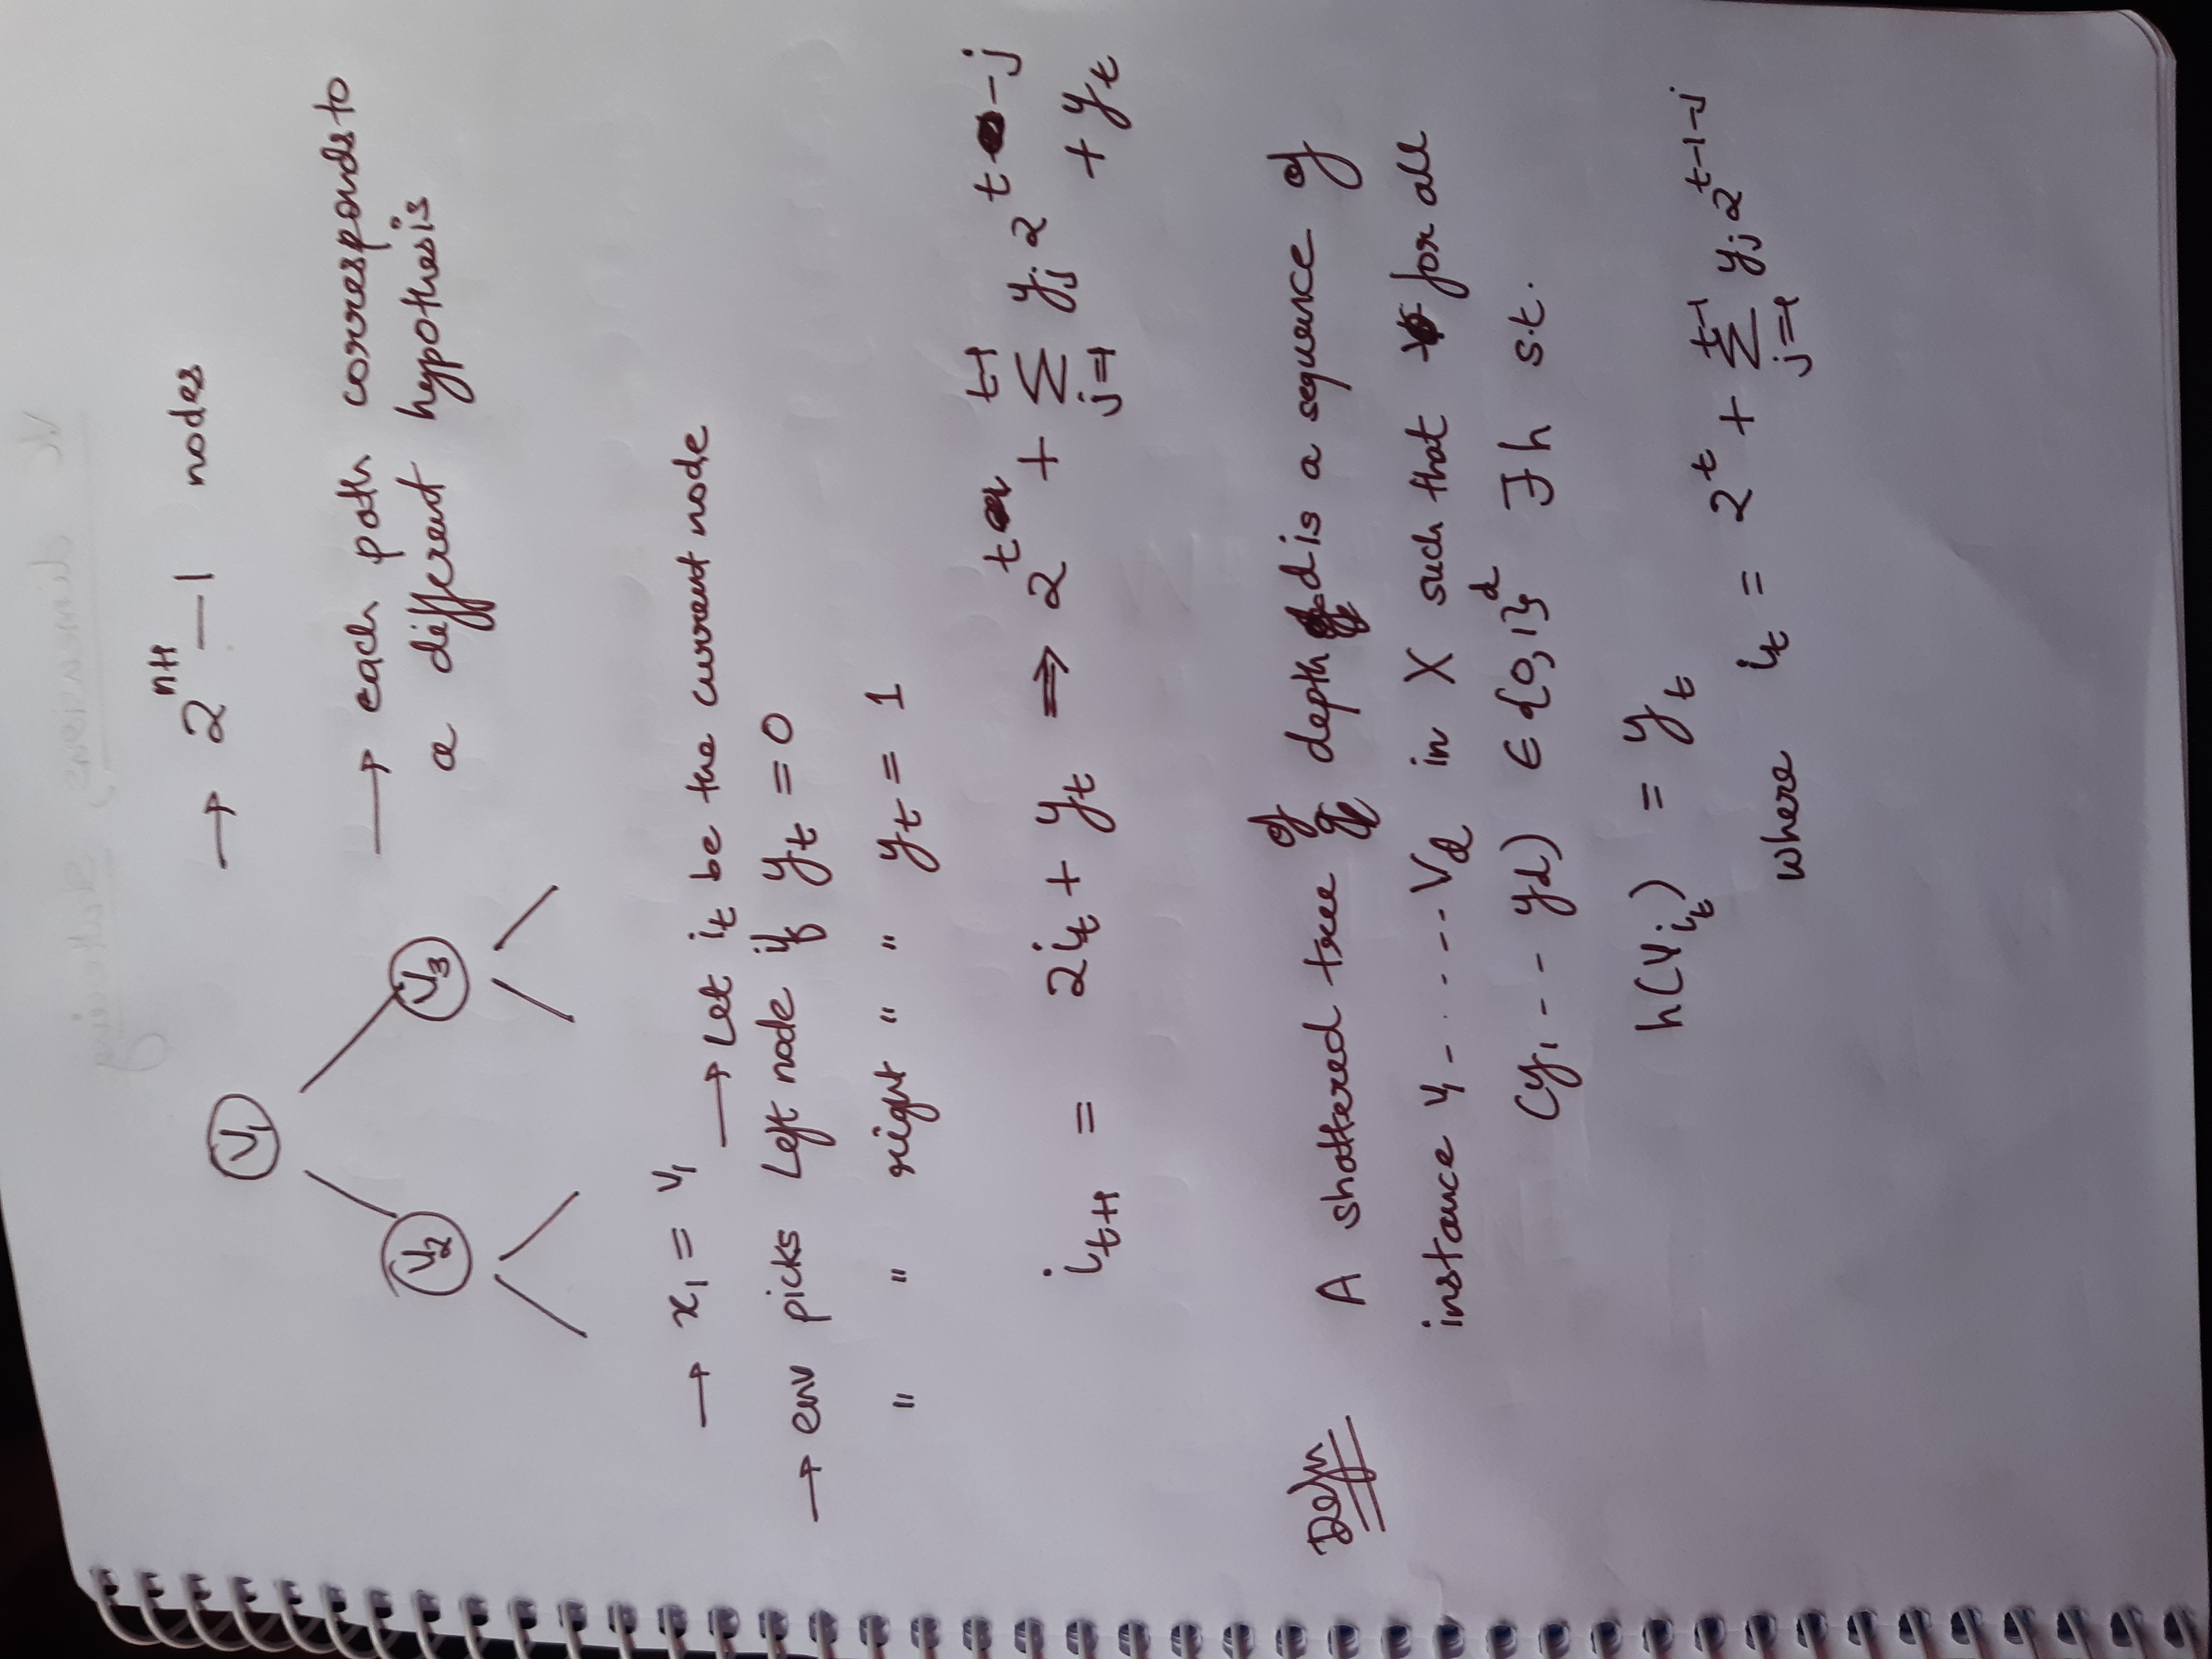 VC dimensions, Shattering
→ 2^{n+1} − 1 nodes
V₁
→ each path corresponds to
V₂ V₃
a different hypothesis
→ x₁ = V₁
→ Let i_t be the current node
→ env picks Left node if y_t = 0
" " right " " y_t = 1
i_{t+1} = 2i_t + y_t ⇒ 2^t + Σ_{j=1}^{t-1} y_j 2^{t-j}
+ y_t
Defn A shattered tree of depth d is a sequence of
instance V₁ - ..... V_d in X such that for all
(y₁ .. y_d) ∈ {0,1}^d ∃ h s.t.
h(V_{i_t}) = y_t
where i_t = 2^t + Σ_{j=1}^{t-1} y_j 2^{t-1-j}